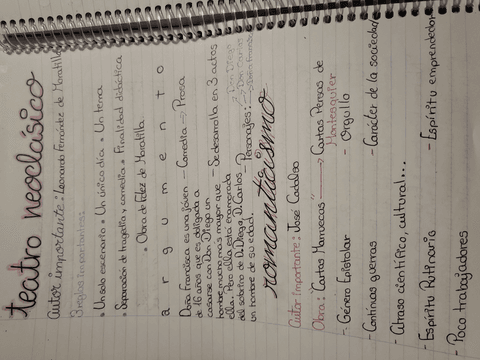 teatro neoclásico
autor importante: Leonardo Fernández de Moratilla
Reglas importantes:
• Un solo escenario • Un único día • Un tema
• Separación de tragedia y comedia • Finalidad didáctica
• Obra de Félez de Moratilla
argumento
Doña Francisca es una jóven
de 16 años que es obligada a
casarse con Don Diego un
hombre mucho mas mayor que
ella. Pero ella está enamorada
del sobrino de D. Diego, D. Carlos
un hombre de su edad.
- Comedia → Prosa
- Se desarrolla en 3 actos
- Personajes: → Don Diego
→ Don Carlos
→ Doña Francisca
romanticismo
autor importante: José Cadalso
Obra: Cartas Marruecas → Cartas Persas de
Montesquier
- Género Epistolar
- Orgullo
- Continuas guerras
- Carácter de la sociedad
- Atraso científico, cultural...
- Espíritu Rutinario
- Espíritu emprendedor
- Poco trabajadores